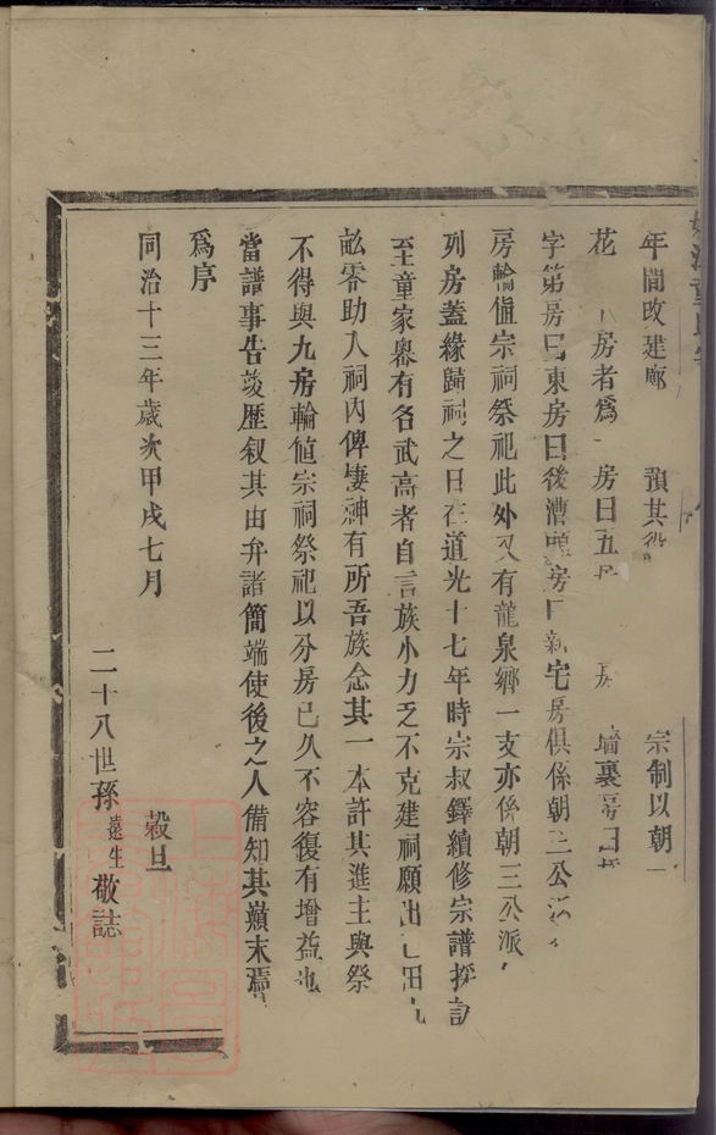 年間改建廊 預其役 宗制以朝
花 房者爲 房曰五 房 墻裏房曰
字第房曰東房曰後漕頭房曰新宅房俱係朝三公派
房輪值宗祠祭祀此外又有龍泉鄉一支亦係朝三公派
列房蓋緣歸祠之日在道光十七年時宗叔鐸續修宗譜採訪
至童家嶴有名武高者自言族小力乏不克建祠願出己田九
畝零助入祠內俾棲神有所吾族念其一本許其進主與祭
不得與九房輪值宗祠祭祀以分房已久不容復有增益也
當譜事告竣歷叙其由弁諸簡端使後之人備知其巔末焉
爲序
同治十三年歲次甲戌七月 穀旦
二十八世孫遠生敬誌